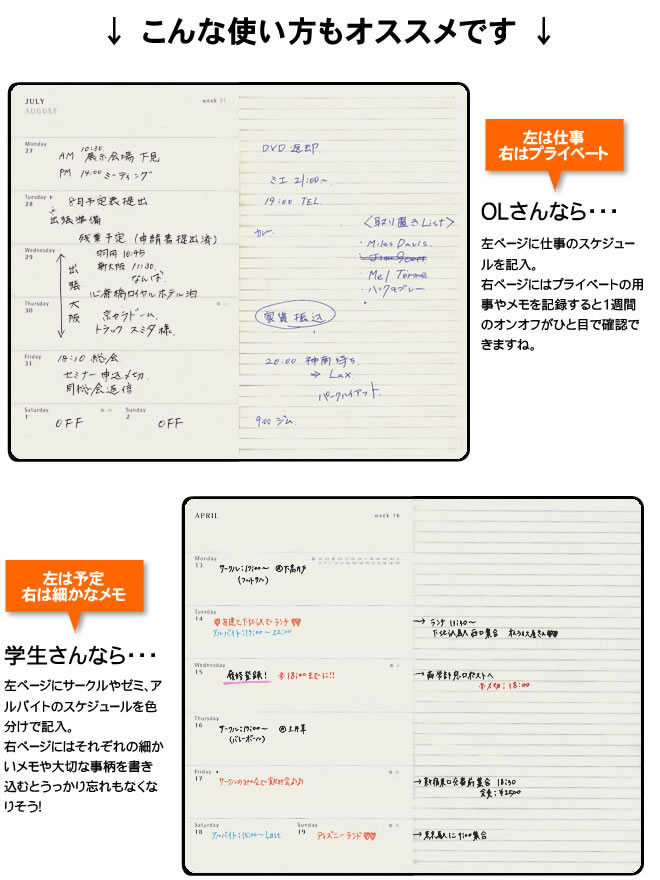 ↓ こんな使い方もオススメです ↓
JULY
AUGUST
week 31
Monday
27
AM 10:30 展示会場 下見
PM 14:00 ミーティング
DVD 返却
ミエ 21:00~
Tuesday
28
8月予定表提出
出張準備
残業予定 (申請書提出済)
19:00 TEL.
カレー
<取り置きList>
・Miles Davis.
・Mel Torme
Wednesday
29
羽田 10:45
新大阪 11:30
なんば
心斎橋ロイヤルホテル泊
出張大阪
Thursday
30
京セラドーム.
トラック スミタ様.
家賃振込
Friday
31
18:10 総会
セミナー申込〆切.
月総会返信
20:00 神南待ち
⇒ Lax
パークハイアット.
Saturday
1
OFF
Sunday
2
OFF
9:00 ジム.
左は仕事
右はプライベート
OLさんなら・・・
左ページに仕事のスケジュー
ルを記入。
右ページにはプライベートの用
事やメモを記録すると1週間
のオンオフがひと目で確認で
きますね。
左は予定
右は細かなメモ
学生さんなら・・・
左ページにサークルやゼミ、ア
ルバイトのスケジュールを色
分けで記入。
右ページにはそれぞれの細か
いメモや大切な事柄を書き
込むとうっかり忘れもなくな
りそう!
APRIL
week 16
Monday
13
サークル:17:00~ @下高井戸
(フットサル)
Tuesday
14
♥友達と下北沢でランチ♥♥
アルバイト:17:00~22:00
→ ランチ 11:30~
下北沢駅南口集合
Wednesday
15
履修登録! ※18:00までに!!
→ 商学部窓口ポストへ
※〆切:18:00
Thursday
16
サークル:17:00~ @上井草
(バレーボール)
Friday
17
サークルのみんなで飲み会♪♪
→ 新宿東口交番前集合 18:30
会費:¥2500
Saturday
18
アルバイト:15:00~Last
Sunday
19
ディズニーランド♥♥
→ 東京駅に9:00集合